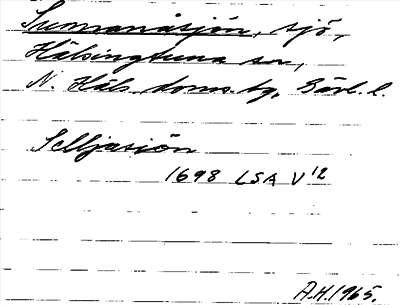 Sunnanåsjön, sjö,
Hälsingtuna sn,
N. Häls. doms. tg, Gävl. l.
Selljasiön
1698 LSA V12
A.H. 1965.